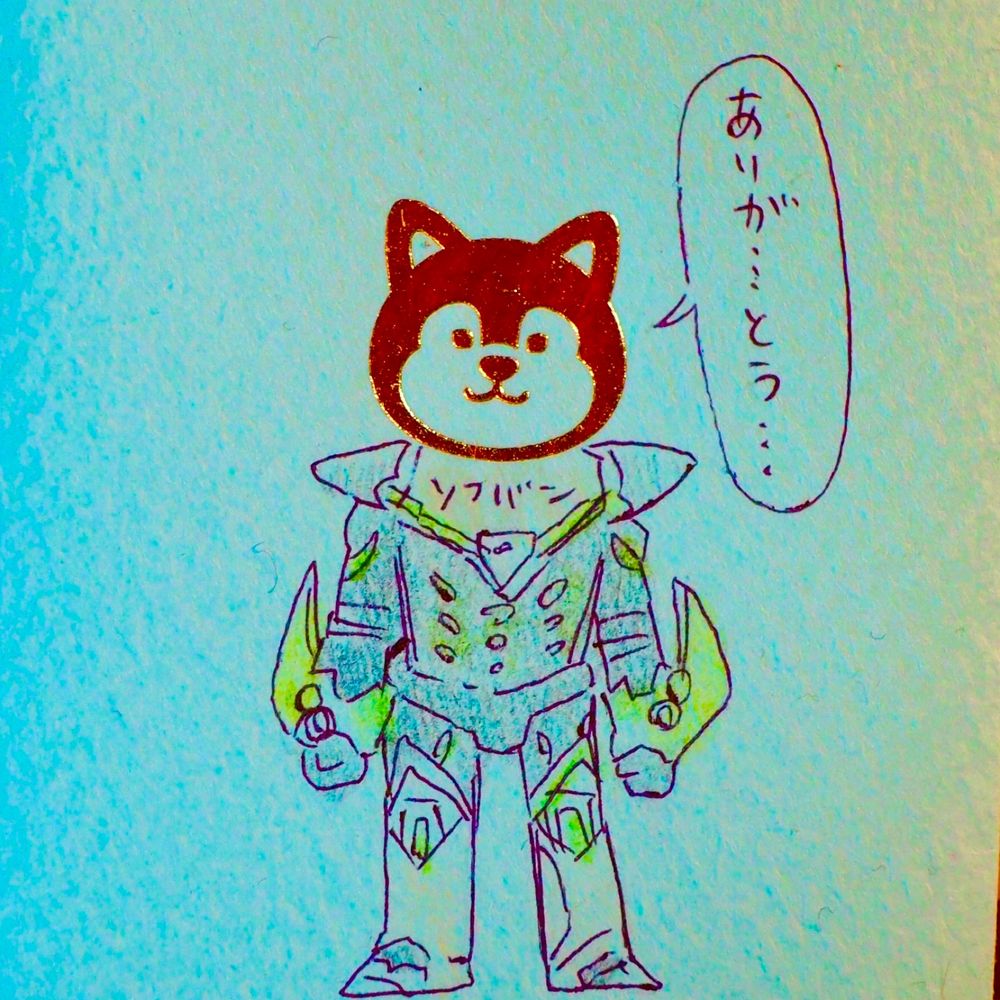 ありが…とう…
ソフバン